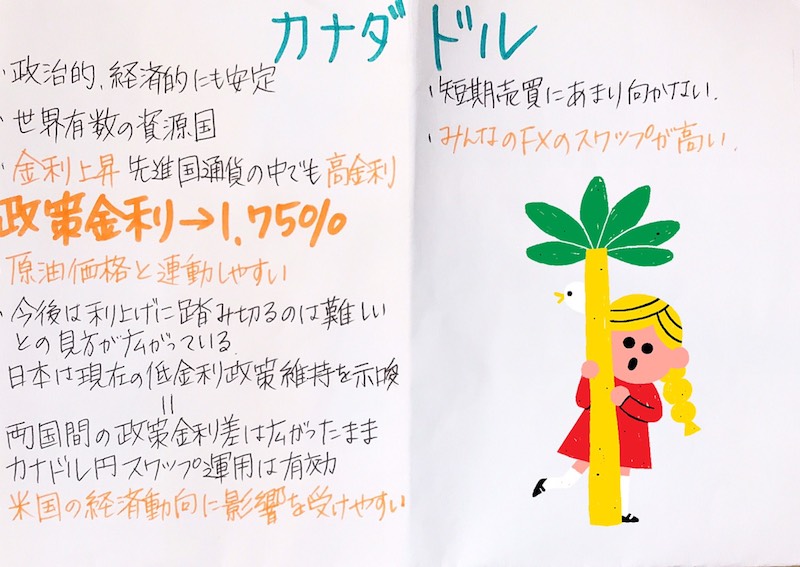 カナダドル
・政治的、経済的にも安定
・世界有数の資源国
・金利上昇 先進国通貨の中でも高金利
政策金利→1.75%
原油価格と連動しやすい
・今後は利上げに踏み切るのは難しい
との見方が広がっている
日本は現在の低金利政策維持を示唆
=
両国間の政策金利差は広がったまま
カナドル円スワップ運用は有効
米国の経済動向に影響を受けやすい
・短期売買にあまり向かない.
・みんなのFXのスワップが高い.